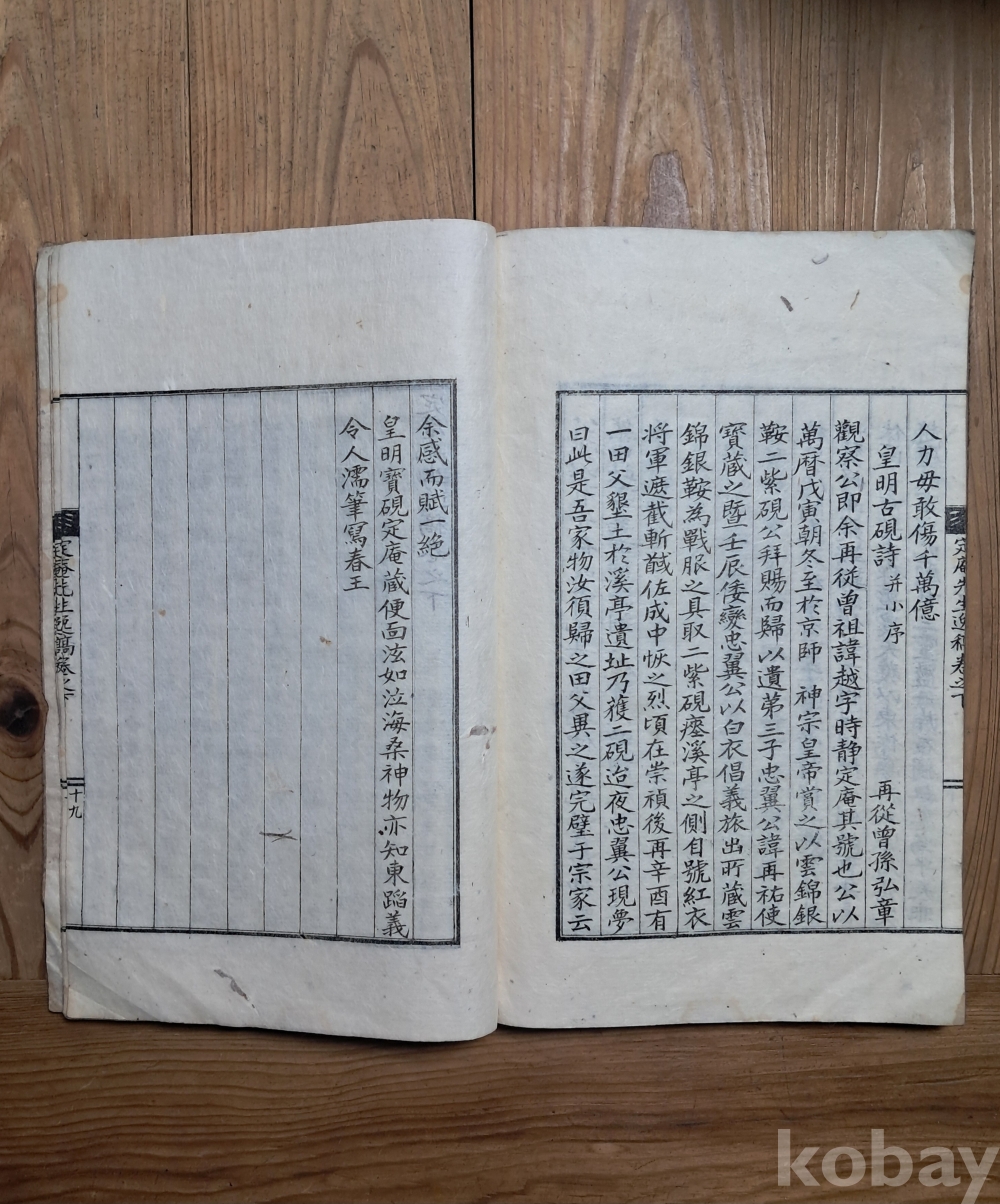 人力毋敢傷千萬億
皇明古硯詩 并小序
再從曾孫弘章
觀察公即余再從曾祖諱越字時靜定庵其號也公以
萬曆戊寅朝冬至於京師 神宗皇帝賞之以雲錦銀
鞍二紫硯公拜賜而歸以遺第三子忠翼公諱再祐使
寶藏之曁壬辰倭變忠翼公以白衣倡義旅出所藏雲
錦銀鞍為戰服之具取二紫硯瘞溪亭之側自號紅衣
將軍遮截斬馘佐成中恢之烈頃在崇禎後再辛酉有
一田父墾土於溪亭遺址乃獲二硯迨夜忠翼公現夢
曰此是吾家物汝須歸之田父異之遂完璧于宗家云
定庵先生逸稿卷之下
余感而賦一絶
皇明寶硯定庵藏便面泫如泣海桑神物亦知東蹈義
令人濡筆寫春王
定庵先生逸稿卷之下
十九
kobay